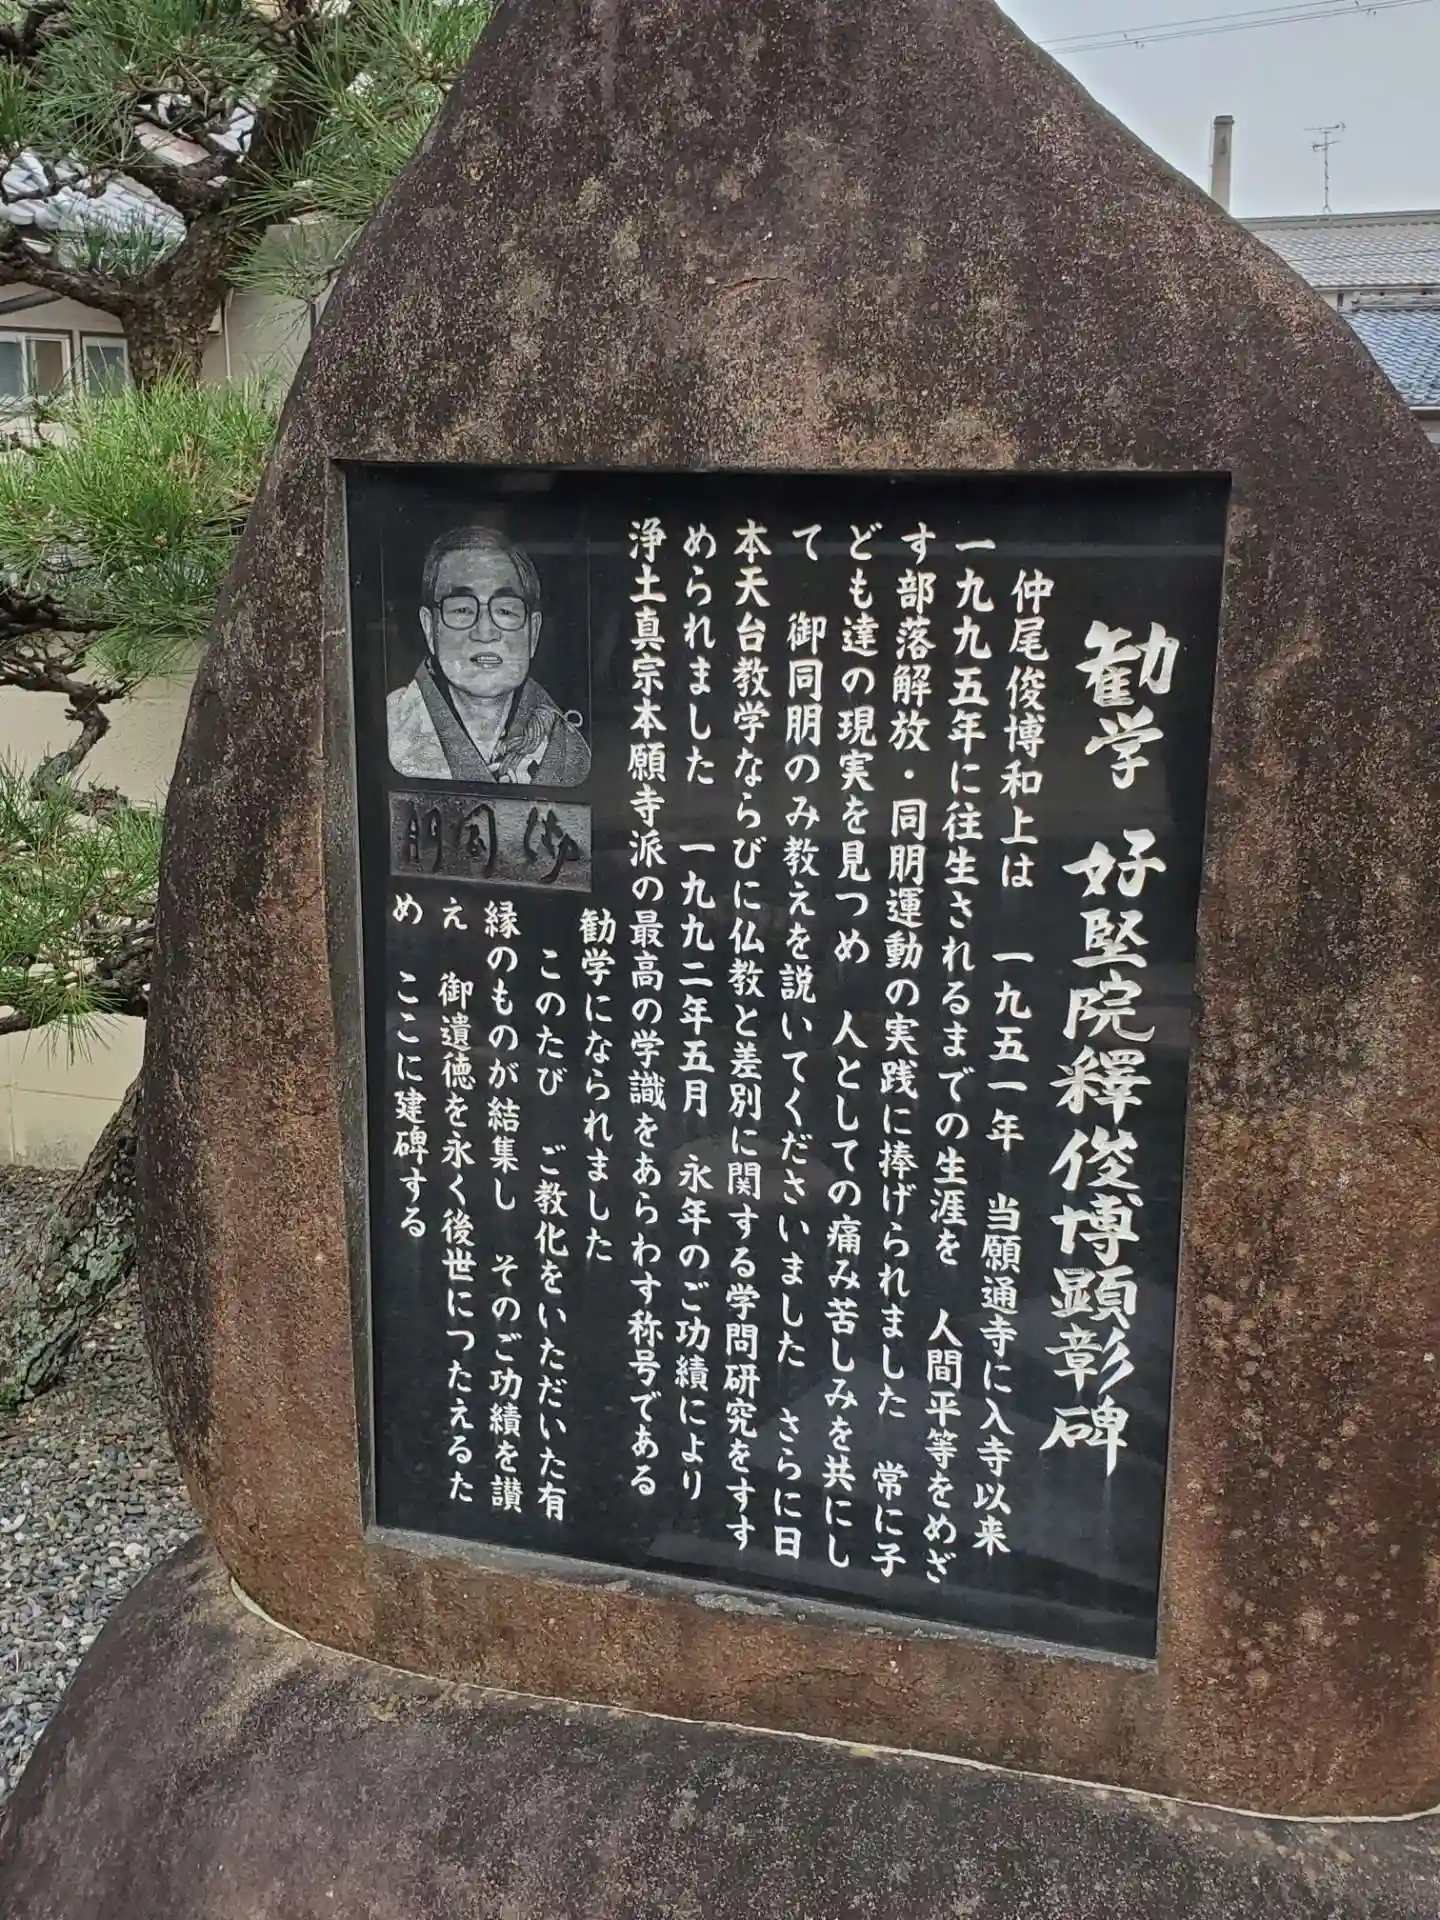 勧学 好堅院釋俊博顕彰碑
仲尾俊博和上は 一九五一年 当願通寺に入寺以来
一九九五年に往生されるまでの生涯を 人間平等をめざ
す部落解放・同朋運動の実践に捧げられました 常に子
ども達の現実を見つめ 人としての痛み苦しみを共にし
て 御同朋のみ教えを説いてくださいました さらに日
本天台教学ならびに仏教と差別に関する学問研究をすす
められました 一九九二年五月 永年のご功績により
浄土真宗本願寺派の最高の学識をあらわす称号である
勧学になられました
このたび ご教化をいただいた有
縁のものが結集し そのご功績を讃
え 御遺徳を永く後世につたえるた
め ここに建碑する
御同朋